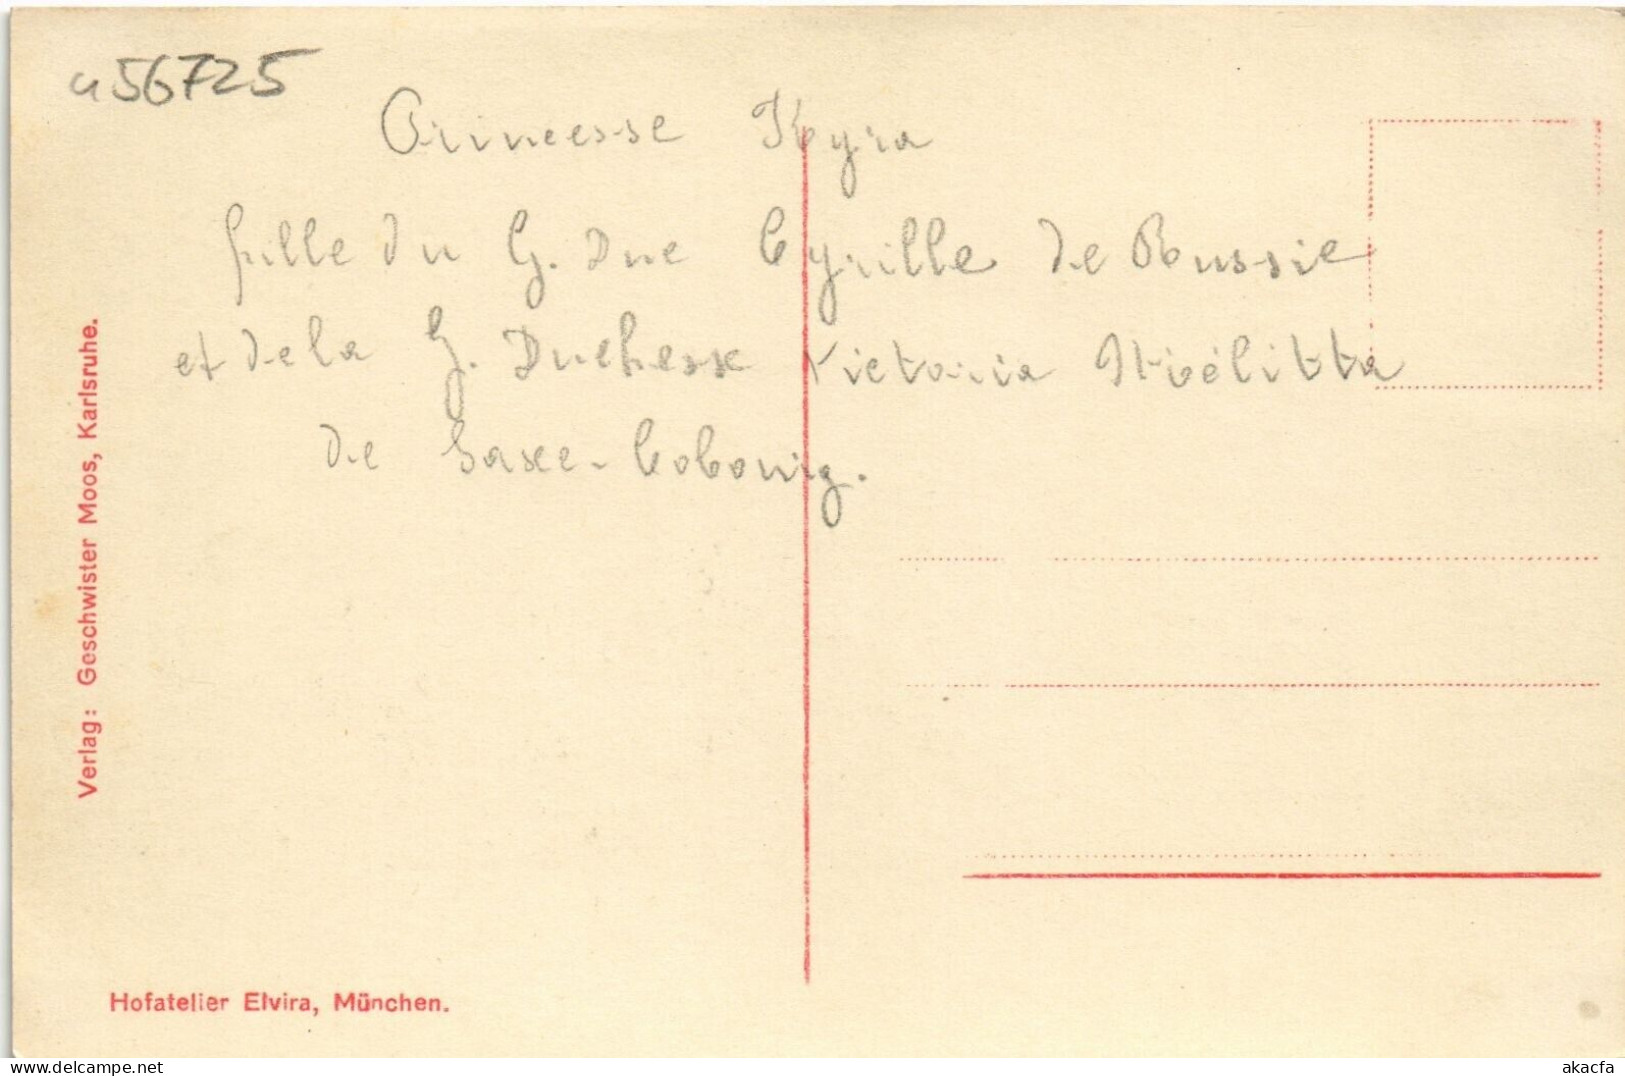 456725
Princesse Kyra
fille du G. Duc Cyrille de Russie
et de la G. Duchesse Victoria Mélitta
de Saxe-Cobourg.
Verlag: Geschwister Moos, Karlsruhe.
Hofatelier Elvira, München.
akpool.co.uk
akacfa